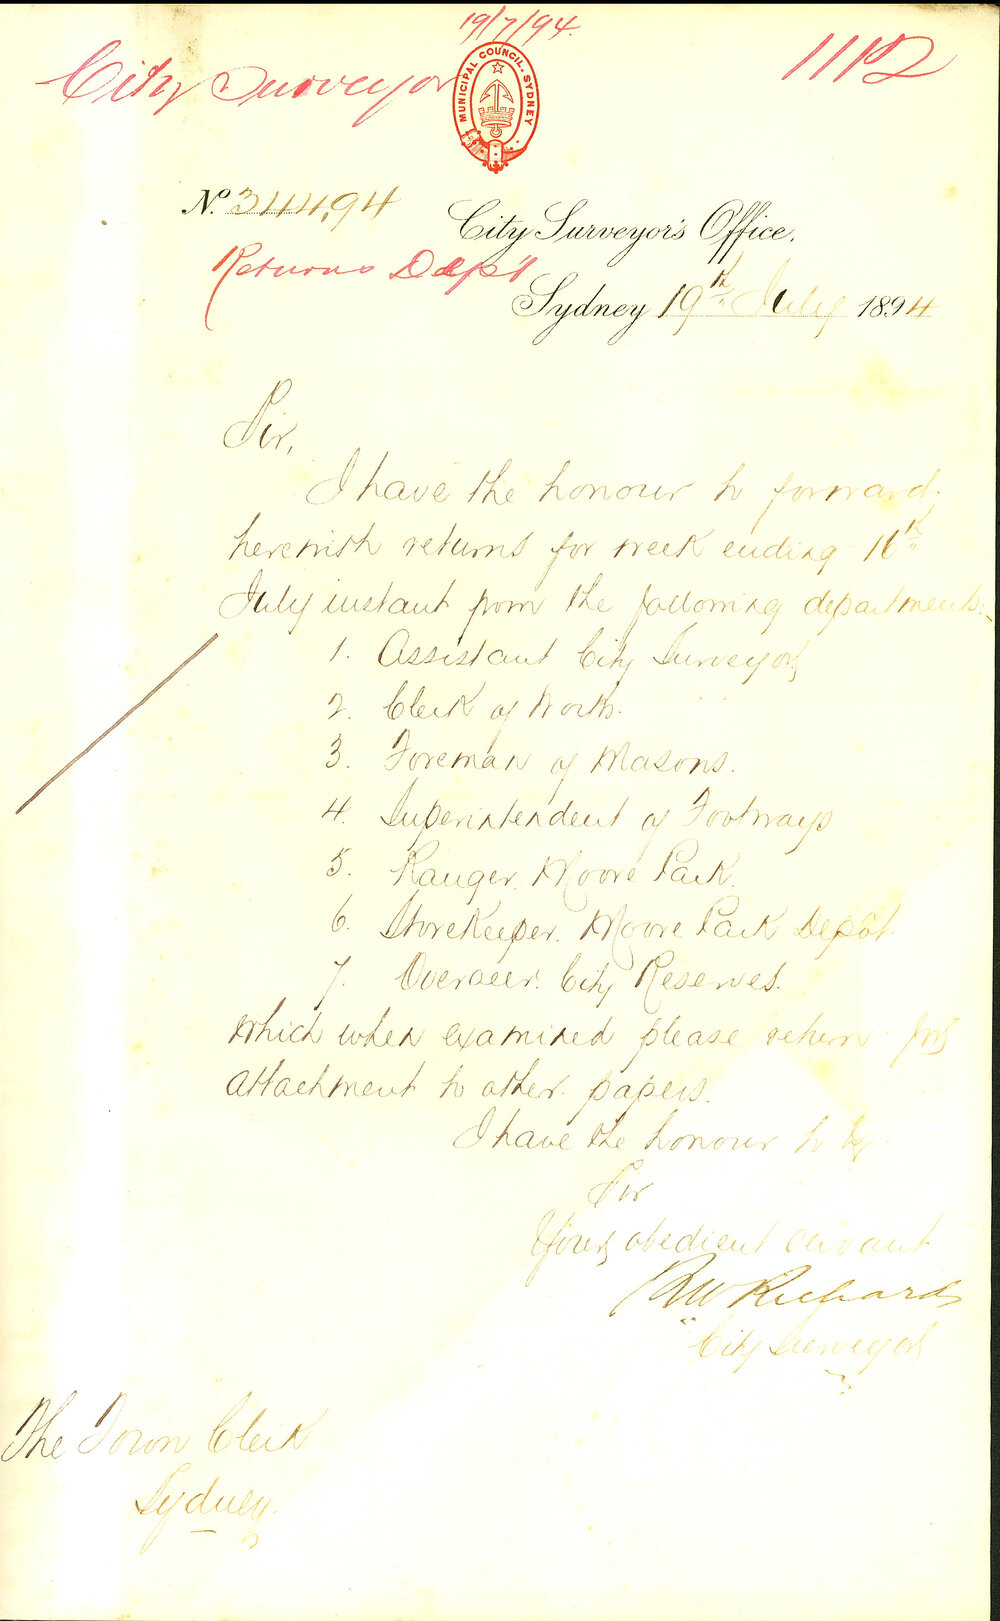 19/7/94.
City Surveyor
1112
MUNICIPAL COUNCIL. SYDNEY
No. 344.94
City Surveyor's Office.
Returns Dep't
Sydney 19th July 1894
Sir,
I have the honour to forward
herewith returns for week ending 16th
July instant from the following departments:
1. Assistant City Surveyor
2. Clerk of Works.
3. Foreman of Masons.
4. Superintendent of Footways
5. Ranger. Moore Park.
6. Storekeeper. Moore Park Depôt.
7. Overseer. City Reserves.
which when examined please return for
attachment to other papers.
I have the honour to be
Sir
Your obedient servant
RW Richards
City Surveyor
The Town Clerk
Sydney.